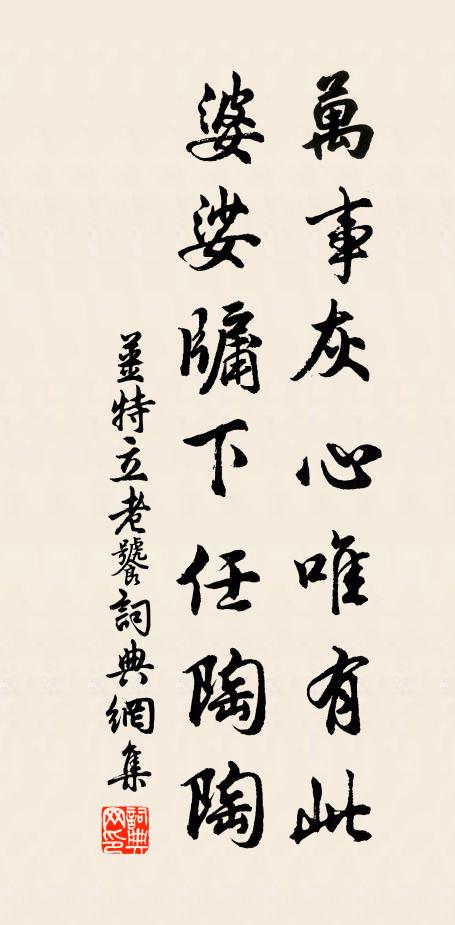 萬事灰心唯有此
婆娑牖下任陶陶
姜特立老饕詞典網集
詞典網印